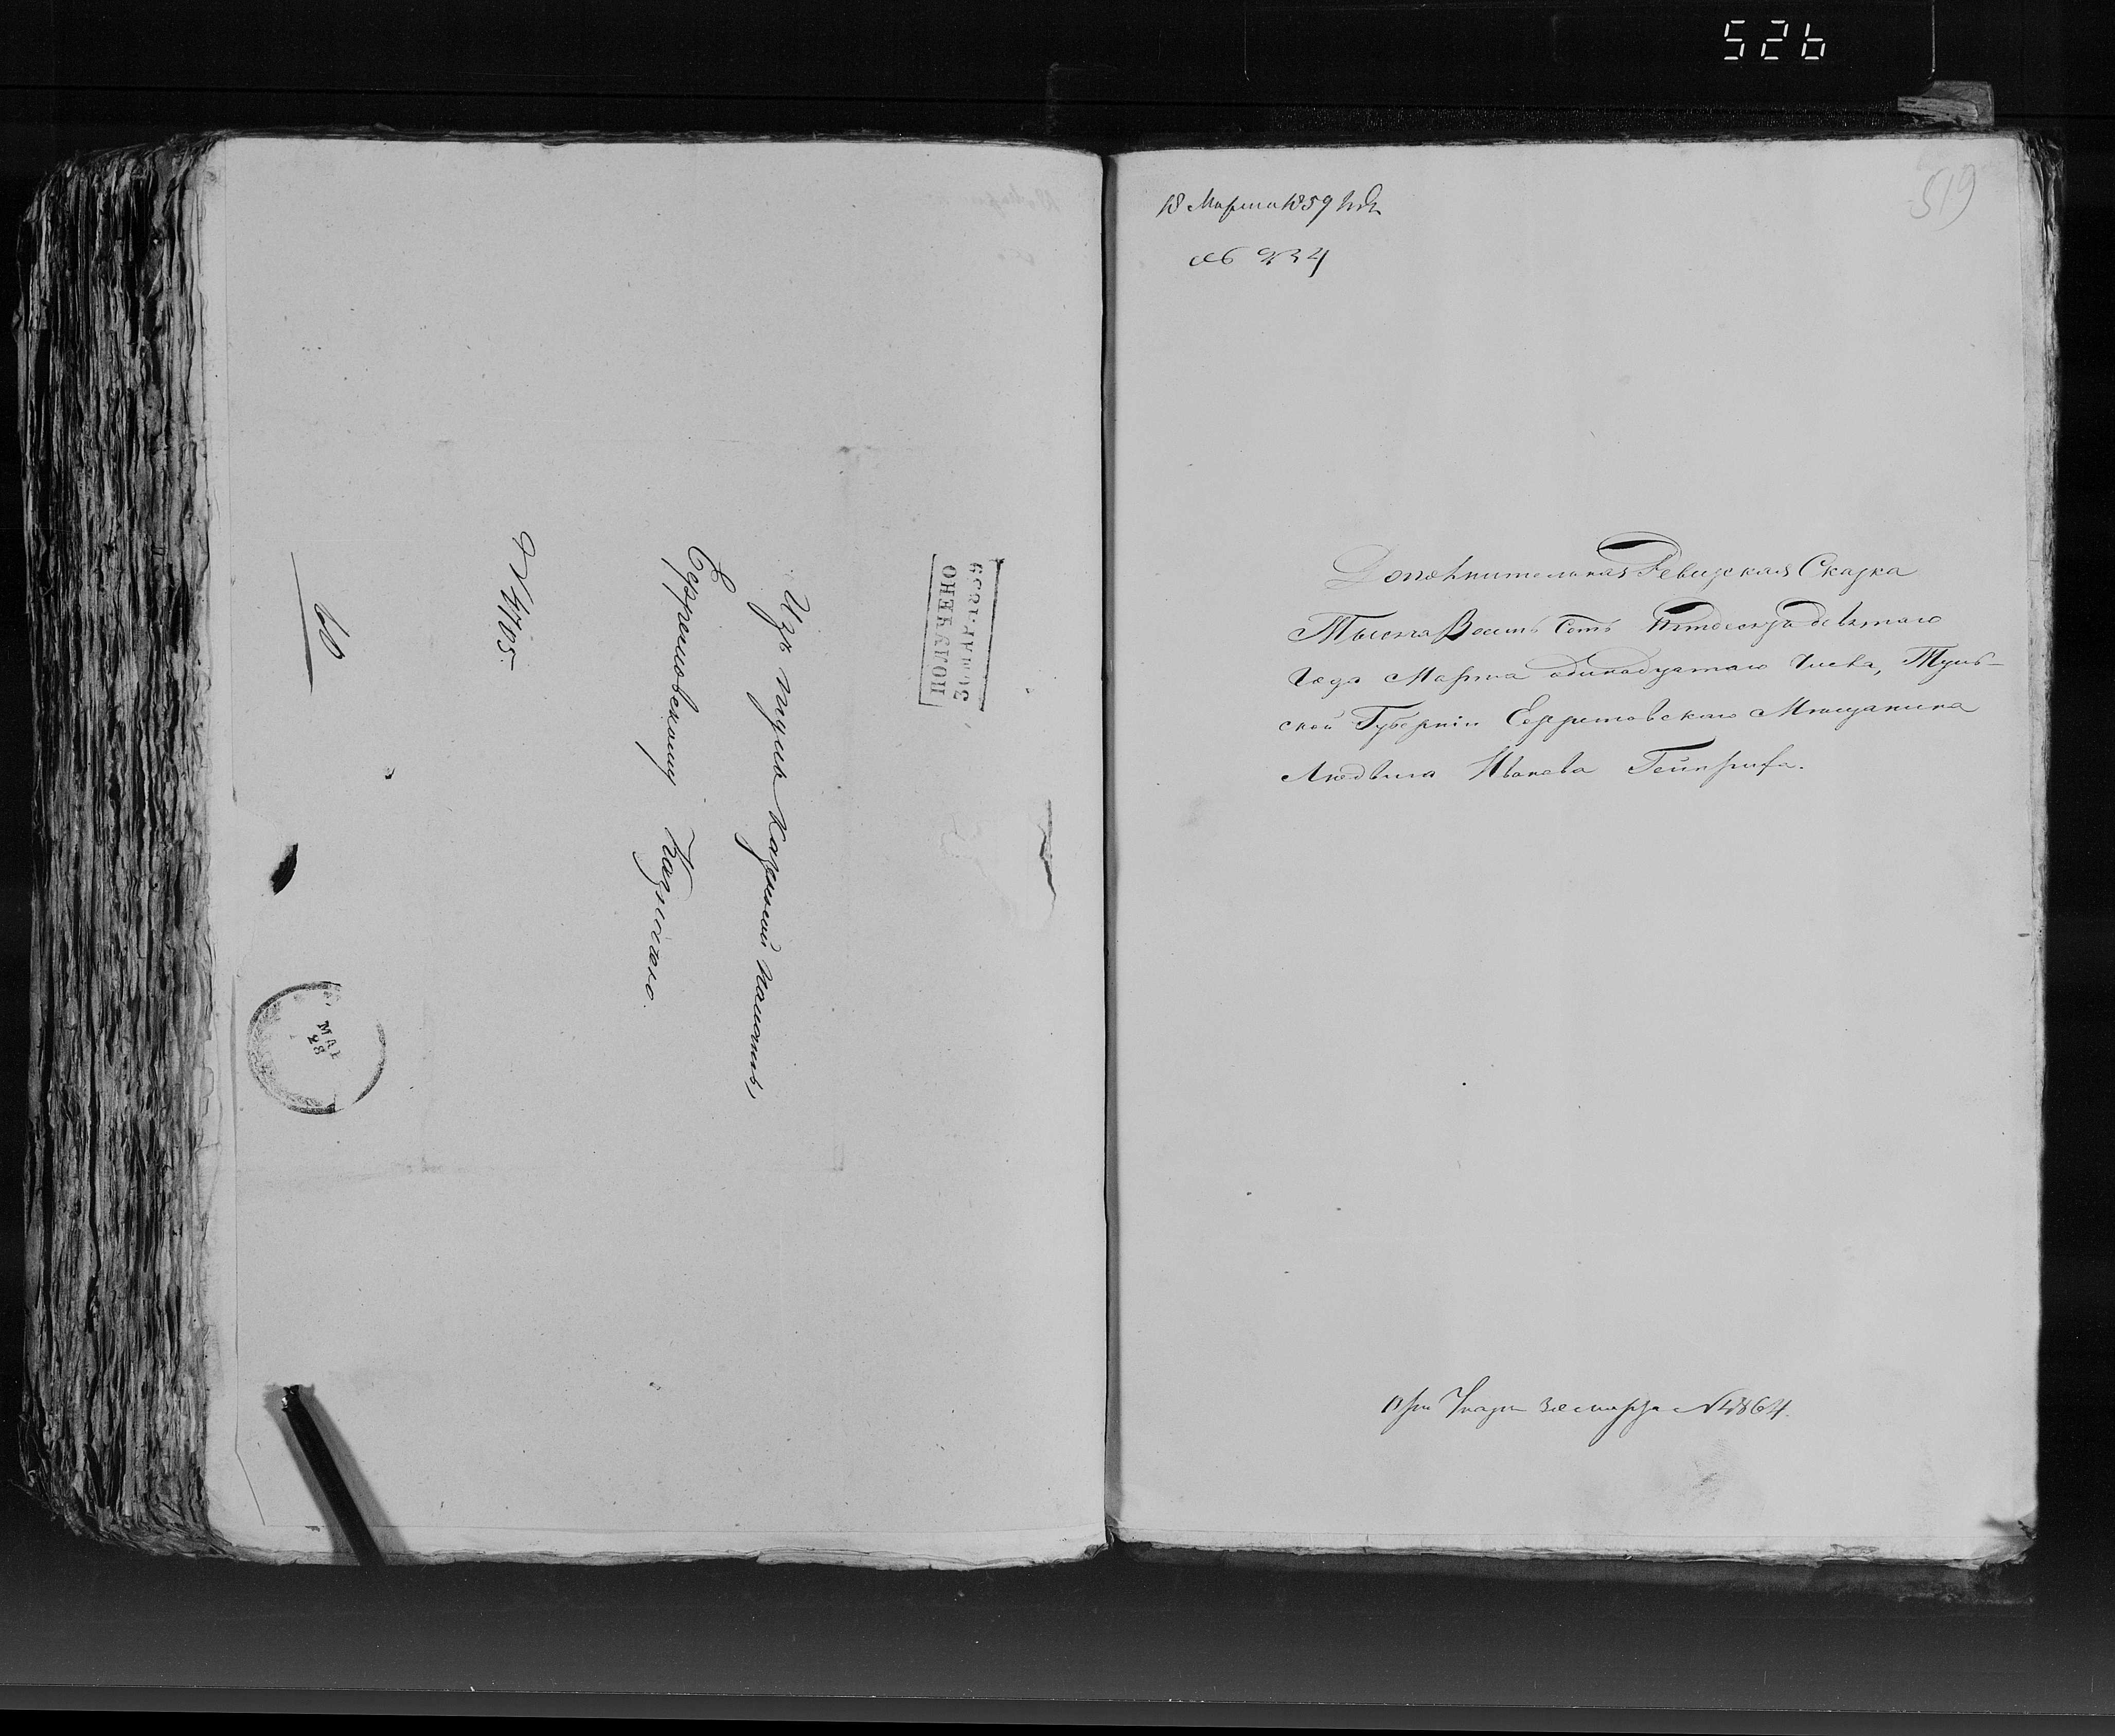 526
Изъ тульс. Казенной палаты,
Ефремовскому Казначею.
№ 4705.
60
ПОЛУЧЕНО
30 МАР. 1859
МАР
28
519
18 Марта 1859 года
№ 234
Дополнительная Ревизская Сказка
Тысяча Восемь Сотъ Пятдесятъ девятаго
Года Марта одинадцатаго Числа, Туль-
ской Губерніи Ефремовскаго Мѣщанина
Людвига Иванова Гейнриха.
При Указѣ 30 марта № 4864.